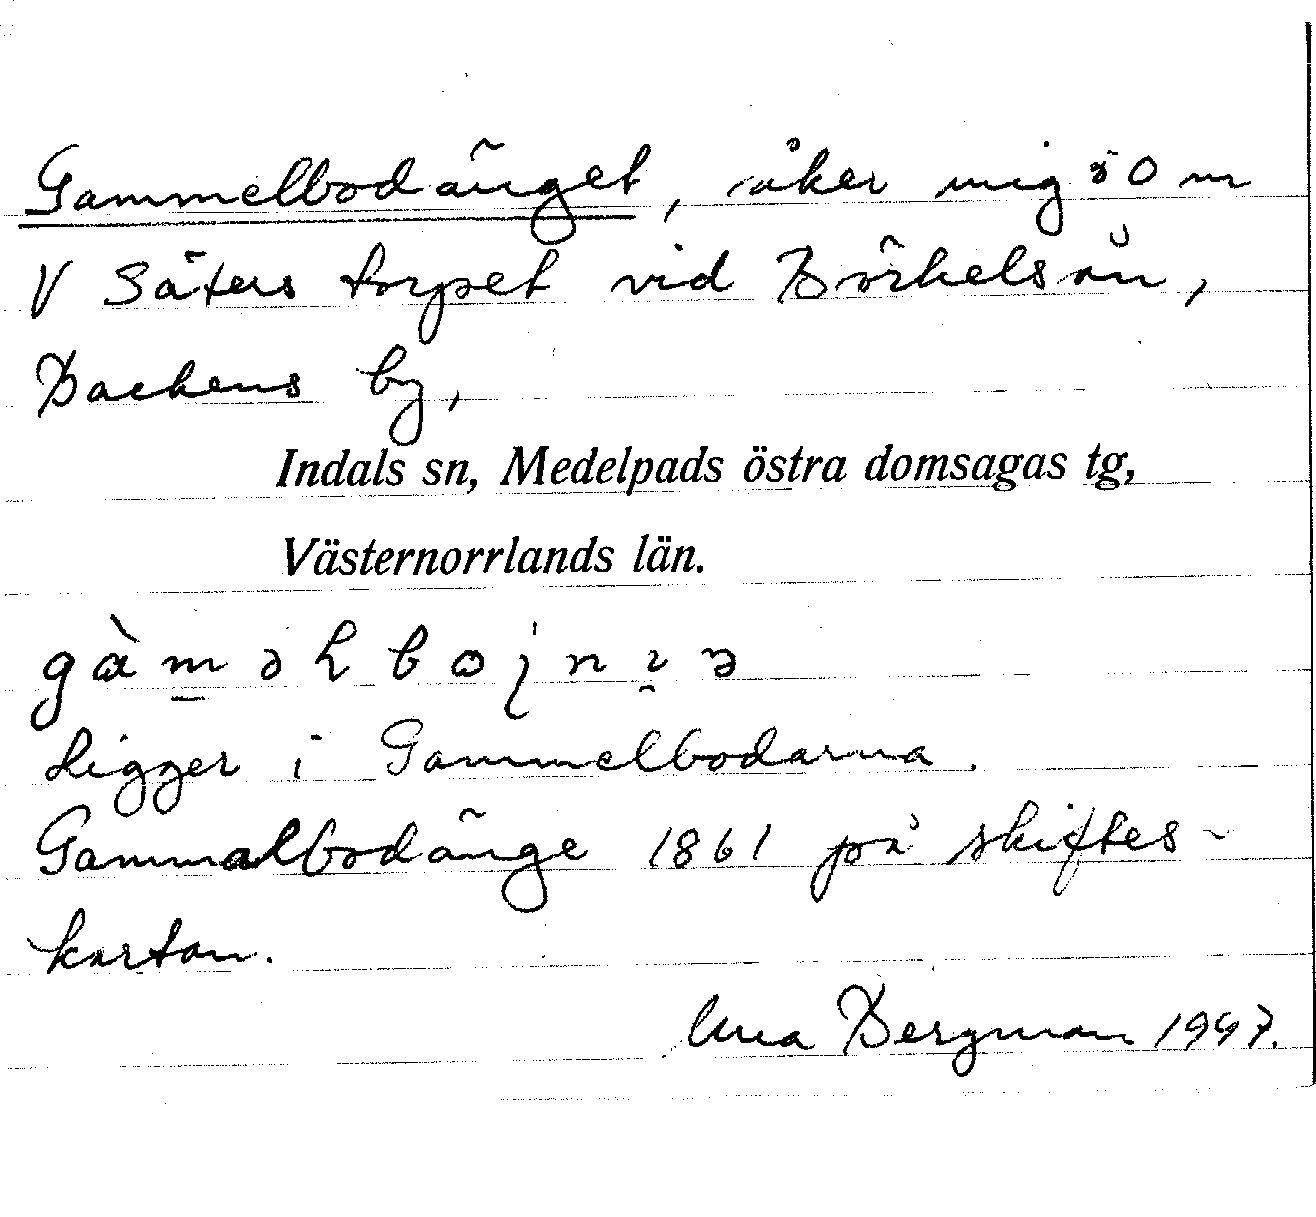 Gammelbodänget, åker mig 50 m
V Säters torpet vid Börkelsån,
Backens by,
Indals sn, Medelpads östra domsagas tg,
Västernorrlands län.
Ligger i Gammelbodarna.
Gammalbodänge 1861 på skiftes-
kartan.
Bergman 1997.